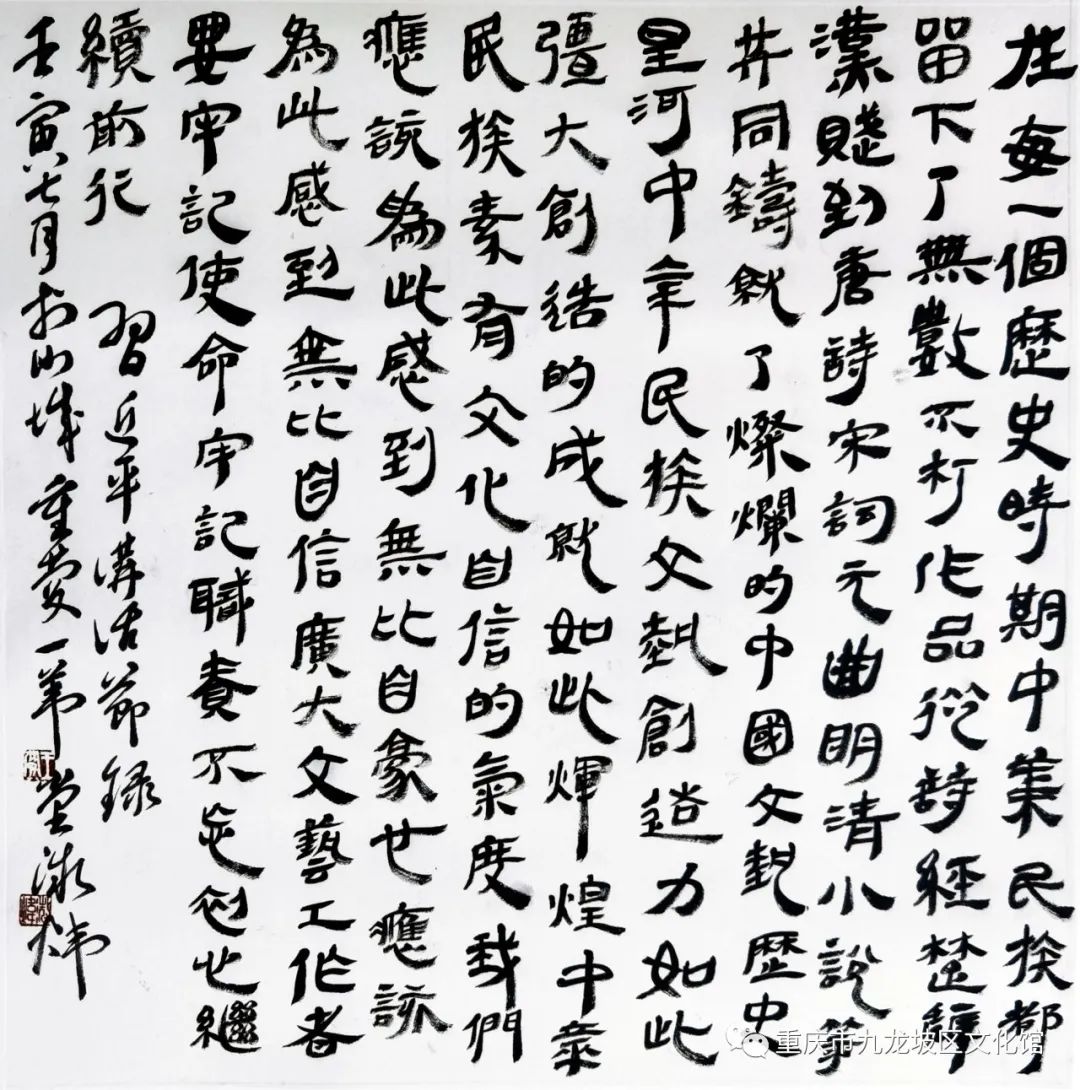 在每一個歷史時期中華民族都
留下了無數不朽作品從詩經楚辭
漢賦到唐詩宋詞元曲明清小說等
共同鑄就了燦爛的中國文藝歷史
星河中華民族文藝創造力如此
強大創造的成就如此輝煌中華
民族素有文化自信的氣度我們
應該為此感到無比自豪也應該
為此感到無比自信廣大文藝工作者
要牢記使命牢記職責不忘初心繼
續前行 習近平講話節錄
壬寅七月於山城重慶一葦堂
重庆市九龙坡区文化馆